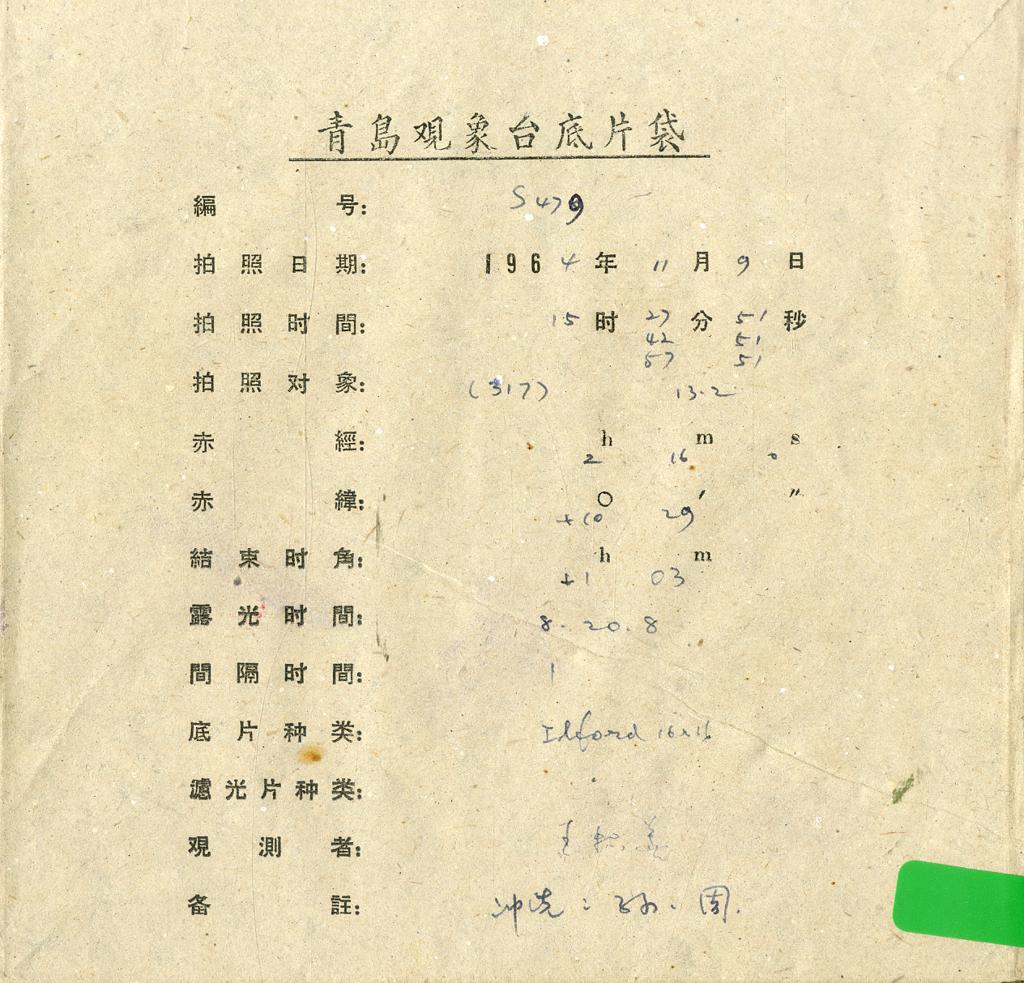 青島观象台底片袋
編号: S479
拍照日期: 1964年11月9日
拍照时間: 15时27分51秒
42 51
57 51
拍照对象: (317) 13.2
赤經: h m s
2 16 0
赤緯: ○ ′ ″
+10 29
結束时角: h m
+1 03
露光时間: 8. 20. 8
間隔时間: 1
底片种类: Ilford 16×16
濾光片种类:
观測者:
备註: 冲洗: 孙. 周.